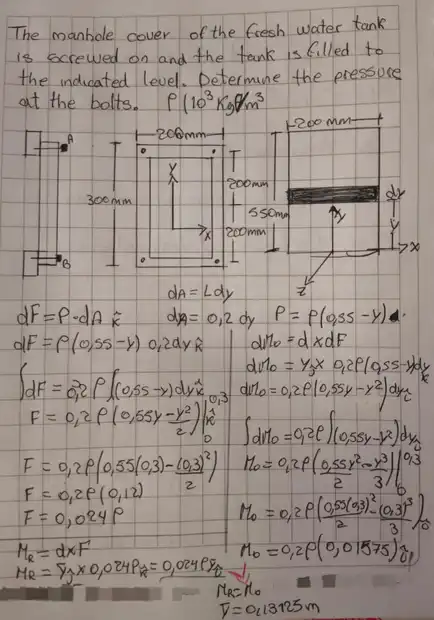 The manhole cover of the fresh water tank
is screwed on and the tank is filled to
the indicated level. Determine the pressure
at the bolts. ρ(10³Kgf/m³
A
B
200mm
300mm
200mm
200mm
Y
X
200mm
550mm
dy
y
Y
X
Z
dA = Ldy
dF = P·dA k̂
dA = 0,2 dy
P = ρ(0,55 - y)
dF = ρ(0,55 - y) 0,2dy k̂
dM₀ = d x dF
dM₀ = yĵ x 0,2ρ(0,55-y)dy k̂
∫dF = 0,2ρ∫(0,55-y)dy k̂
dM₀ = 0,2ρ(0,55y-y²)dy î
F = 0,2ρ(0,55y - y²/2)|₀^0,3 k̂
∫dM₀ = 0,2ρ∫(0,55y-y²)dy î
F = 0,2ρ(0,55(0,3) - (0,3)²/2)
M₀ = 0,2ρ(0,55y²/2 - y³/3)|₀^0,3
F = 0,2ρ(0,12)
F = 0,024ρ
M₀ = 0,2ρ(0,55(0,3)²/2 - (0,3)³/3) î
M_R = d x F
M₀ = 0,2ρ(0,01575) î
M_R = ȳĵ x 0,024ρ k̂ = 0,024ρȳ î
M_R = M₀
ȳ = 0,13125m